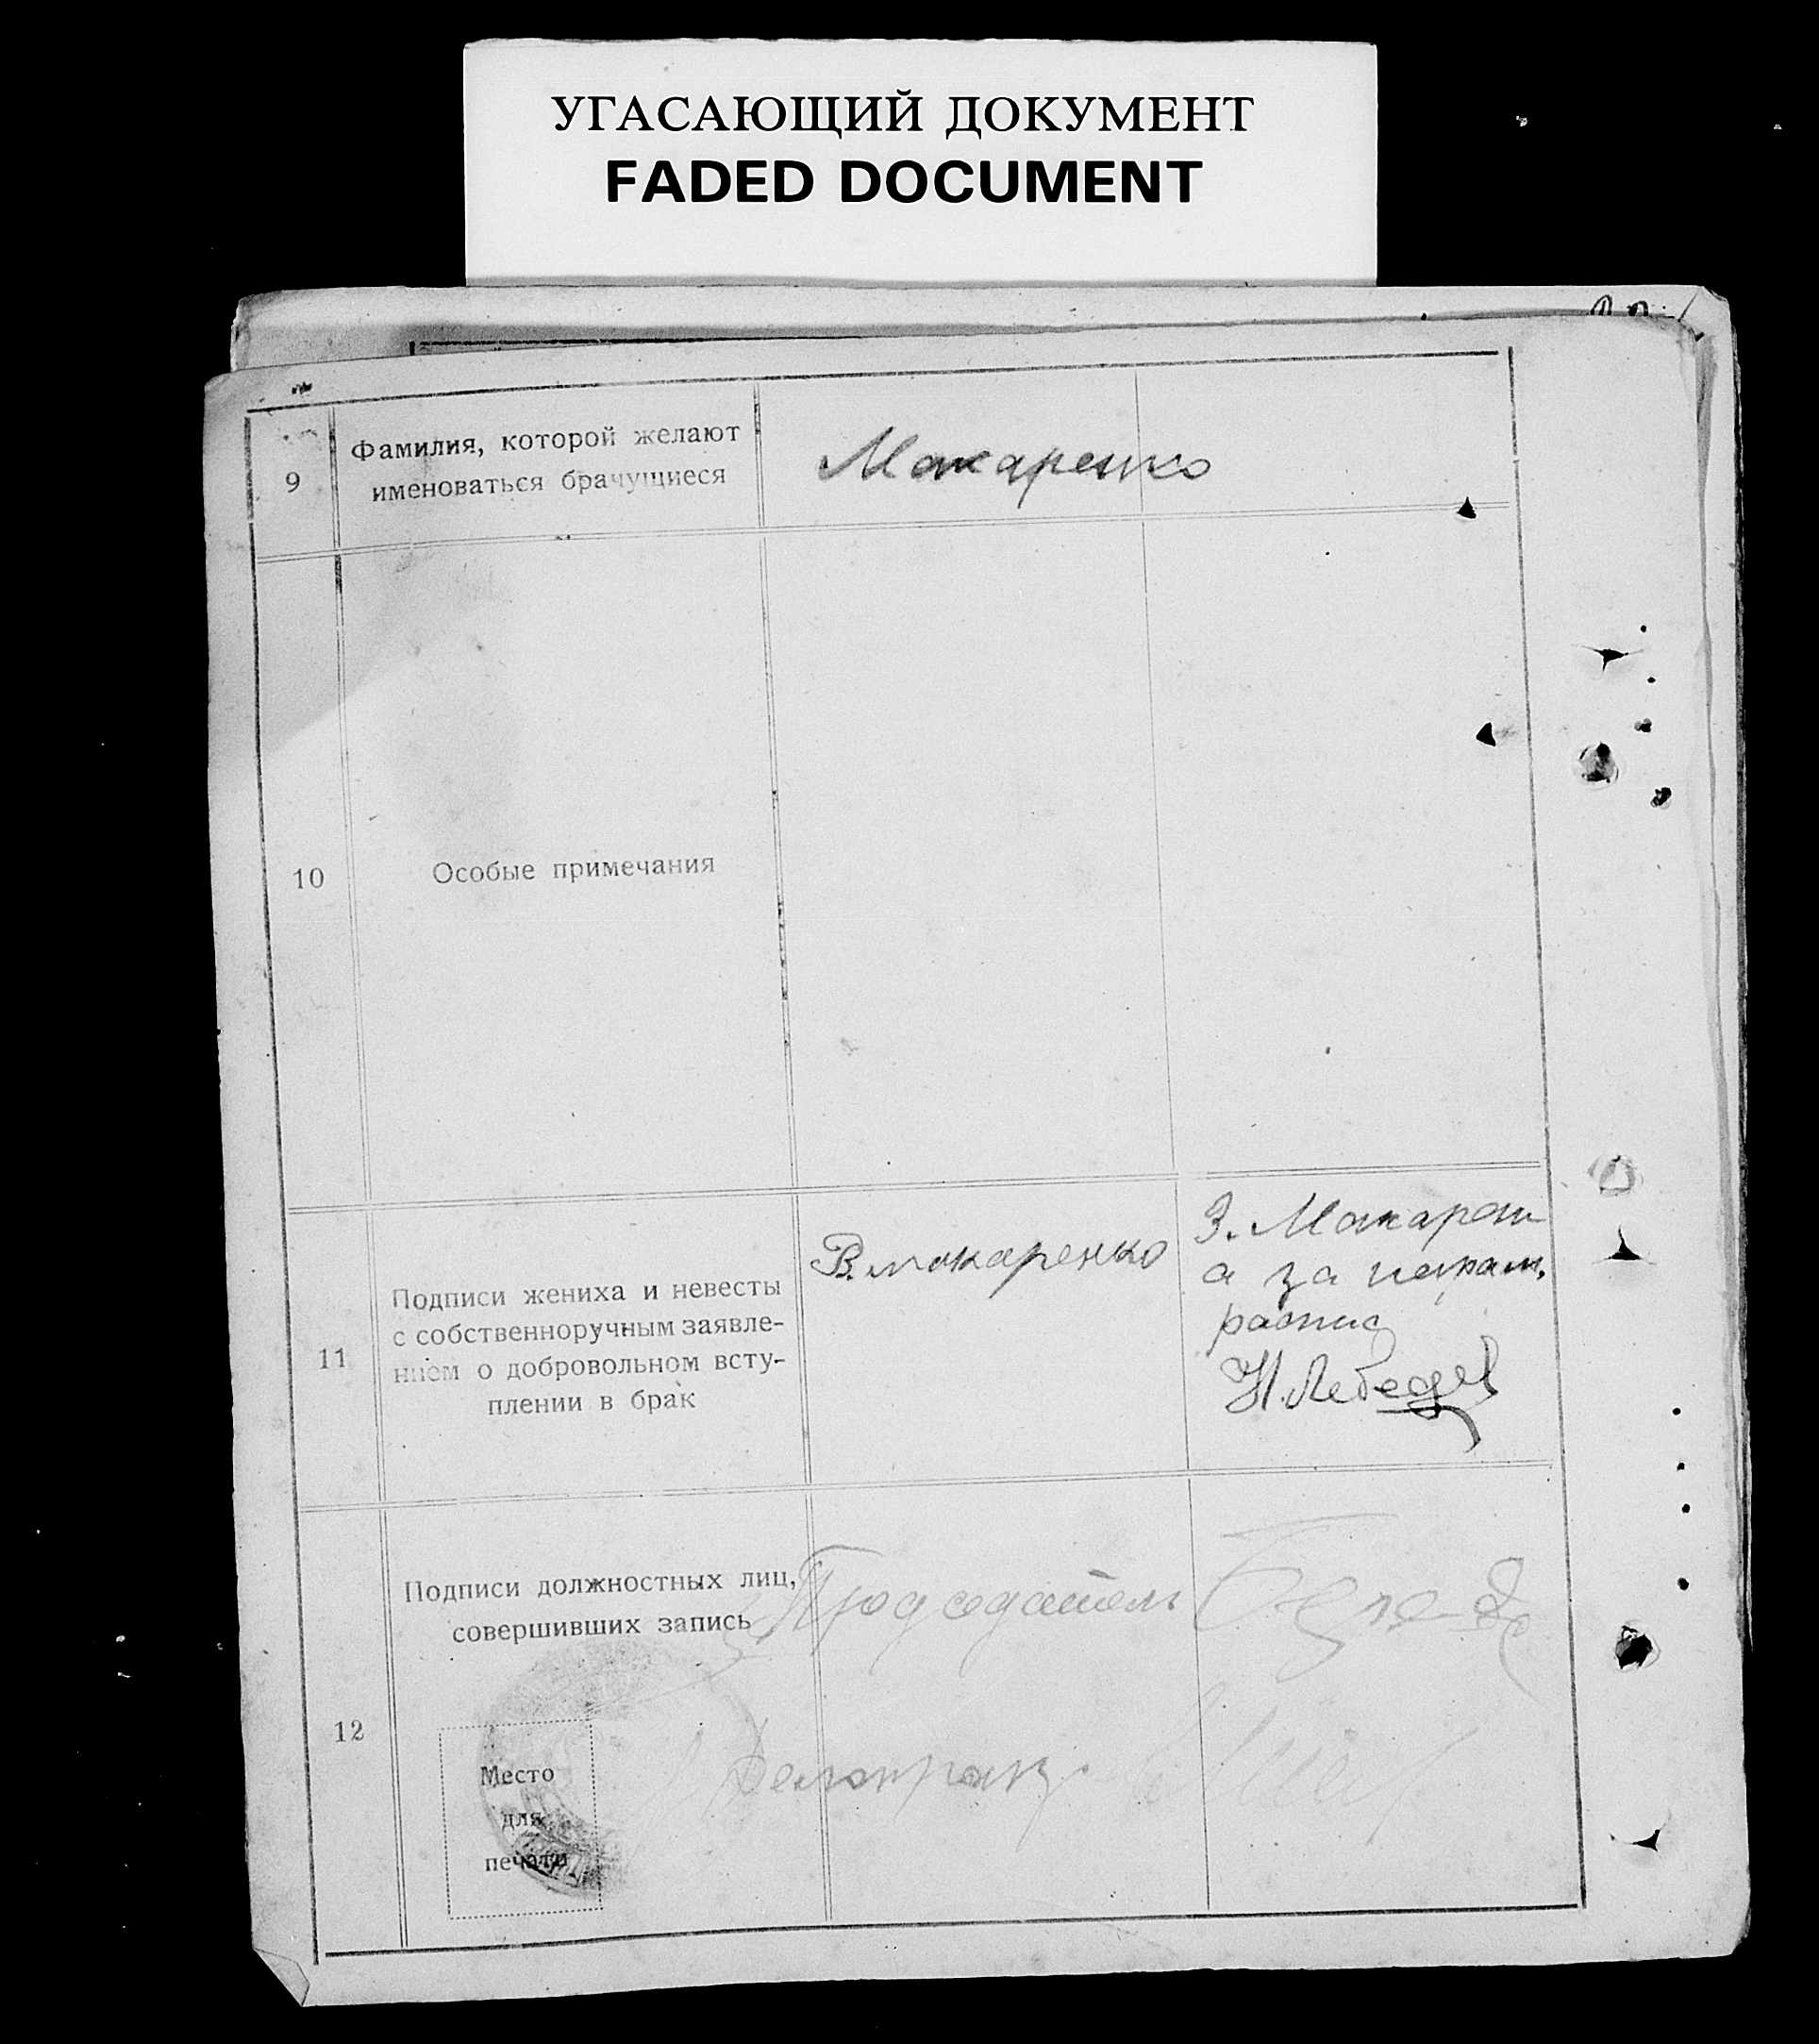 УГАСАЮЩИЙ ДОКУМЕНТ
FADED DOCUMENT
9
Фамилия, которой желают
именоваться брачущиеся
Макаренко
10
Особые примечания
11
Подписи жениха и невесты
с собственноручным заявле-
нием о добровольном всту-
плении в брак
В. Макаренко
З. Макарен
а за неграм.
распис
Н. Лебедев
12
Подписи должностных лиц,
совершивших запись
Председатель
Делопроиз.
Место
для
печати